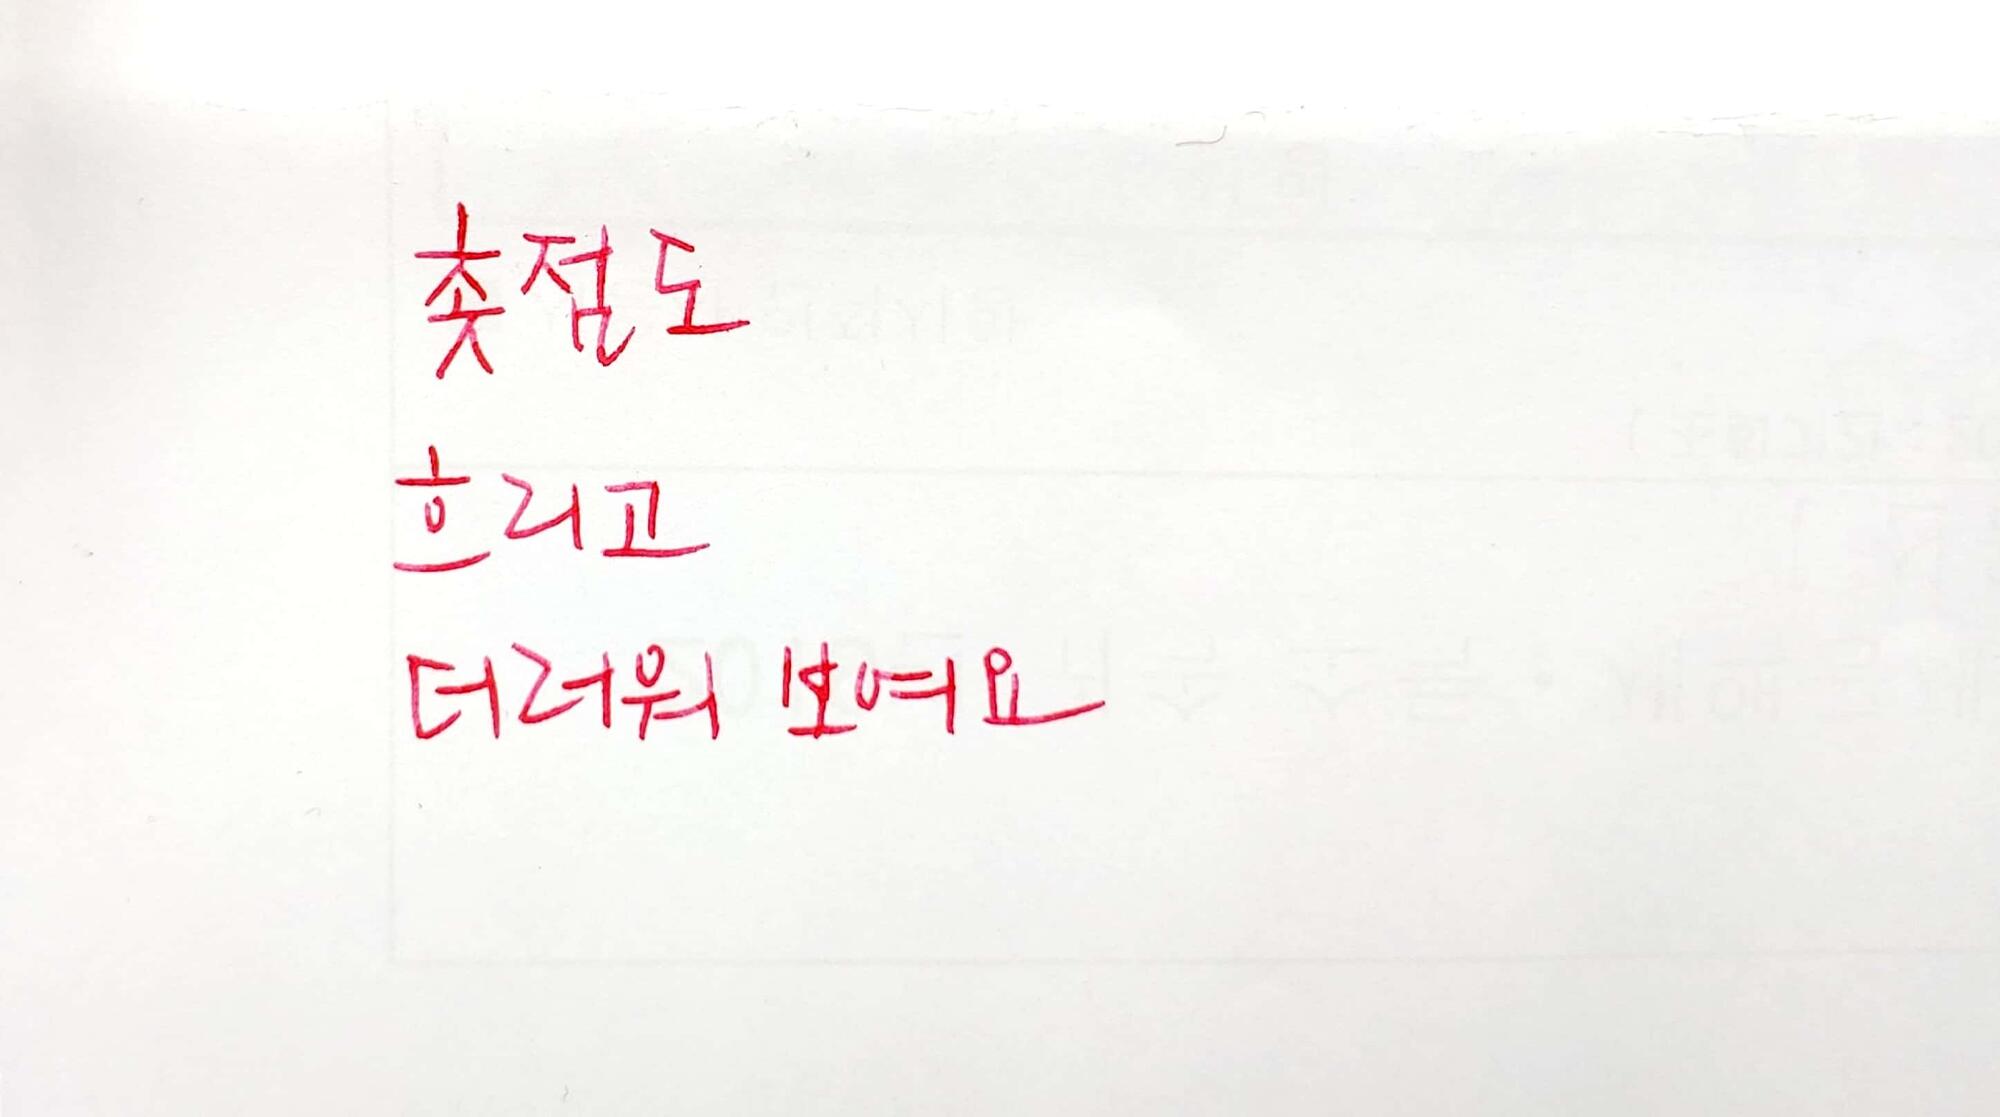 촛점도
흐리고
더러워 보여요